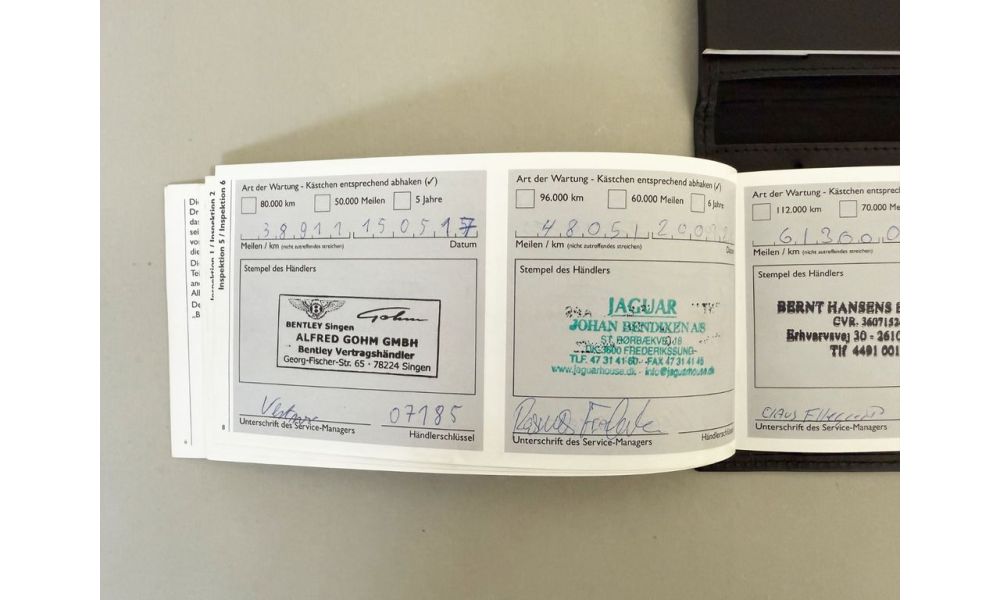 Inspektion 5 / Inspektion 6
Art der Wartung - Kästchen entsprechend abhaken (✓)
80.000 km 50.000 Meilen 5 Jahre
38911 150517
Meilen / km (nicht zutreffendes streichen) Datum
Stempel des Händlers
BENTLEY Singen
ALFRED GOHM GMBH
Bentley Vertragshändler
Georg-Fischer-Str. 65 · 78224 Singen
07185
Unterschrift des Service-Managers Händlerschlüssel
8
Art der Wartung - Kästchen entsprechend abhaken (✓)
96.000 km 60.000 Meilen 6 Jahre
48051
Meilen / km (nicht zutreffendes streichen)
Stempel des Händlers
JAGUAR
JOHAN BENDIXEN AS
FREDERIKSSUND
www.jaguarhouse.dk - info@jaguarhouse.dk
Unterschrift des Service-Managers
Art der Wartung - Kästchen entsprechend
112.000 km 70.000
Meilen / km (nicht zutreffendes streichen)
Stempel des Händlers
BERNT HANSENS
CVR.
Erhvervsvej 30 - 2610
Tlf 4491 001
Unterschrift des Service-Managers